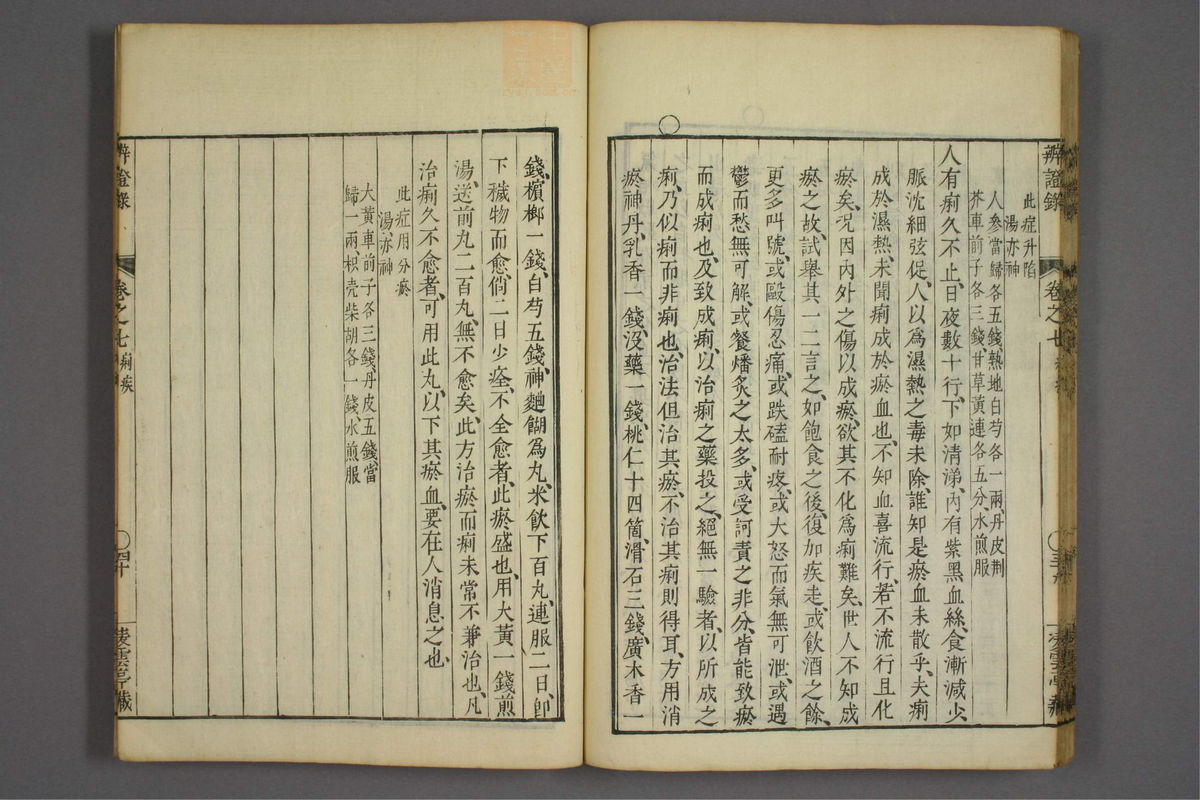 辨證錄
卷之七
此症升陷
湯亦神
人參當歸各五錢熟地白芍各一兩丹皮荆
芥車前子各三錢甘草黄連各五分水煎服
人有痢久不止、日夜數十行、下如清涕、内有紫黑血絲、食漸減少、
脈沈細弦促、人以爲濕熱之毒未除、誰知是瘀血未散乎、夫痢
成於濕熱、未聞痢成於瘀血也、不知血喜流行、若不流行且化
瘀矣、况因内外之傷以成瘀、欲其不化爲痢難矣、世人不知成
瘀之故、試舉其一二言之、如飽食之後、復加疾走、或飲酒之餘、
更多叫號、或毆傷忍痛、或跌磕耐疼、或大怒而氣無可泄、或遇
鬱而愁無可解、或餐燔炙之太多、或受訶責之非分、皆能致瘀
而成痢也、及致成痢、以治痢之藥投之、絕無一驗者、以所成之
痢、乃似痢而非痢也、治法但治其瘀、不治其痢則得耳、方用消
瘀神丹、乳香一錢、没藥一錢、桃仁十四箇、滑石三錢、廣木香一
錢、檳榔一錢、白芍五錢、神麯餬爲丸、米飲下百丸、連服二日、即
下穢物而愈、倘二日少痊、不全愈者、此瘀盛也、用大黄一錢煎
湯、送前丸二百丸、無不愈矣、此方治瘀而痢未常不兼治也、凡
治痢久不愈者、可用此丸、以下其瘀血、要在人消息之也、
此症用分瘀
湯亦神
大黄車前子各三錢、丹皮五錢當
歸一兩、枳壳柴胡各一錢、水煎服
辨證錄
卷之七
痢疾
四十
凌雲亭藏